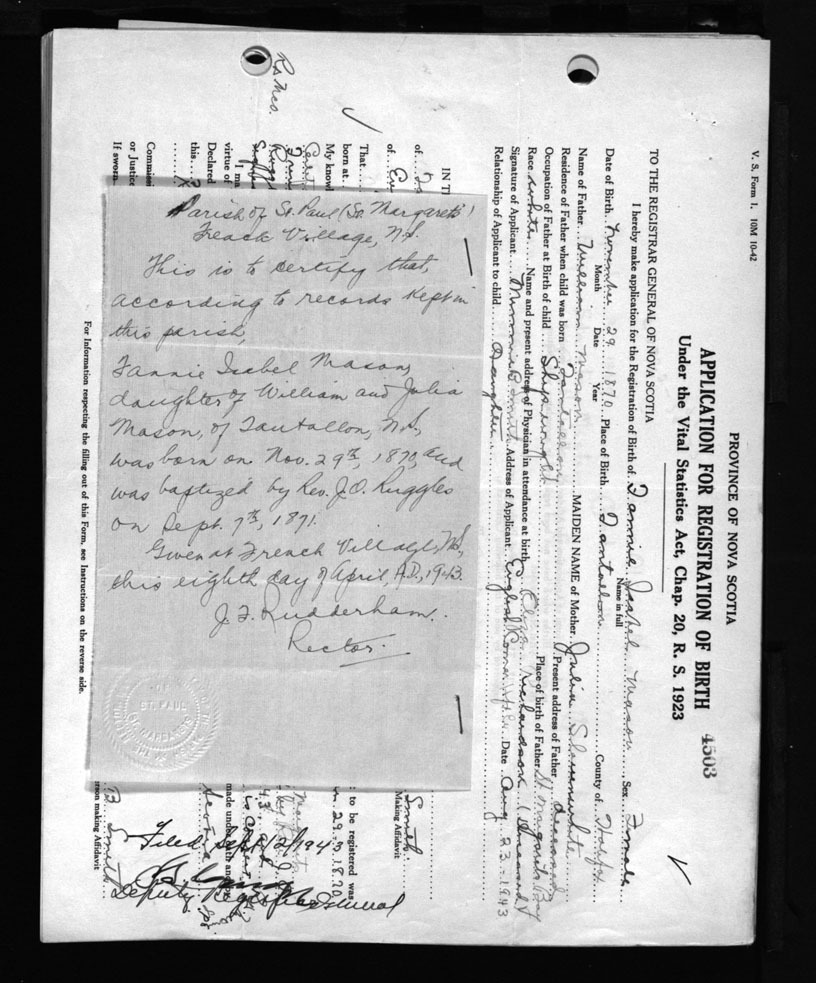 V. S. Form 1. 10M 10-42
PROVINCE OF NOVA SCOTIA
APPLICATION FOR REGISTRATION OF BIRTH 4503
Under the Vital Statistics Act, Chap. 20, R. S. 1923
TO THE REGISTRAR GENERAL OF NOVA SCOTIA
I hereby make application for the Registration of Birth of Fannie Isabel Mason Sex Female
Name in full
Date of Birth November 29 1870 Place of Birth Tantallon County of Halifax
Month Date Year
Name of Father William Mason MAIDEN NAME of Mother Julia
Residence of Father when child was born Tantallon Present address of Father deceased
Occupation of Father at Birth of child Shipwright Place of birth of Father St Margarets Bay
Race white Name and present address of Physician in attendance at birth Richardson (deceased)
Signature of Applicant Smith Address of Applicant English Corner Date Aug 23 - 1943
Relationship of Applicant to child Daughter
Parish of St. Paul (St. Margaret's)
French Village, N.S.
This is to certify that,
according to records kept in
this parish,
Fannie Isabel Mason,
daughter of William and Julia
Mason, of Tantallon, N.S.,
was born on Nov. 29th, 1870, and
was baptized by Rev. J.O. Ruggles
on Sept. 7th, 1871.
Given at French Village, N.S.,
this eighth day of April, A.D., 1943.
J. F. Rudderham.
Rector.
ST. PAUL
IN T
of
of
That
born at
My know
I ma
virtue of
Declared
this
Commissi
or Justice
If sworn
Smith
Making Affidavit
: to be registered was
n 29 - 1870
made under oath and
Scotia
B. Smith
erson making Affidavit
Filed Sept
Deputy Registrar General
For Information respecting the filling out of this Form, see Instructions on the reverse side.